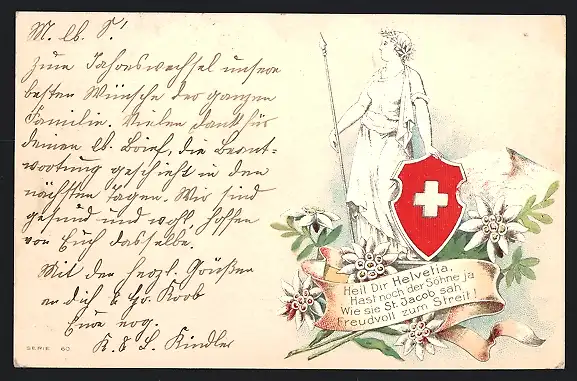 M. lb. S.!
Zum Jahreswechsel unsere
besten Wünsche der ganzen
Familie. Vielen Dank für
deinen lb. Brief, die Beant-
wortung geschieht in den
nächsten Tagen. Wir sind
gesund und wohl hoffen
von Euch dasselbe.
Mit den herzl. Grüßen
an dich &
Eure
K. & S. Kindler
Heil Dir Helvetia,
Hast noch der Söhne ja
Wie sie St. Jacob sah,
Freudvoll zum Streit!
SERIE 60